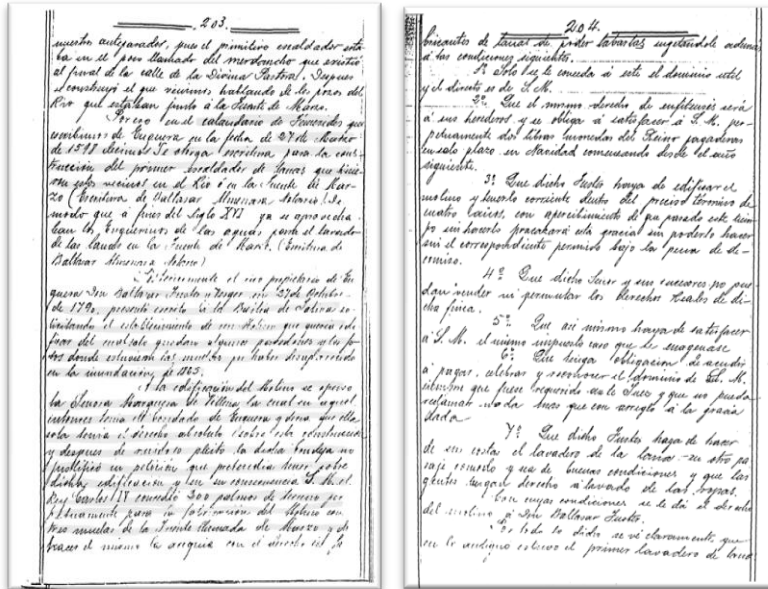 203.
nuestros antepasados, pues el primitivo escaldador esta-
ba en el pozo llamado del mordoncho que existió
al final de la calle de la Divina Pastora. Despues
construyó el que venimos hablando de los pozos del
Rio que estaban junto á la Fuente de Marzo.
en el calendario de
escribimos de Enguera en la fecha de 27 de
de 1598 decimos Se otorga escritura para la cons-
trucción del primer escaldador de lanas que hicie-
ron estos vecinos en el Rio ó en la Fuente de Mar-
zo (Escritura de Baltasar Almenara Notario) De
modo que á fines del Siglo XVI ya se aprovecha-
ban los Enguerinos de las aguas para el lavado
de las lanas en la Fuente de Marzo. (Escritura de
Baltasar Almenara Notario)
el rico propietario de En-
guera Don Baltasar Fustes y en 27 de Octubre
de 1790, presentó escrito á la Baylia de Játiva so-
licitando el establecimiento de un Molino que queria edi-
ficar del cual solo quedan algunos paredones y los fo-
sos donde estuvieron las muelas por haber desaparecido
en la inundacion de
A la edificación del Molino se opuso
la Señora Marquesa de la cual en aquel
entonces tenia el Condado de Enguera y decia que ella
sola tenia el derecho absoluto sobre esta construccion
y despues de ruidoso pleito la dicha Condesa no
justificó su peticion que pretendia tener sobre
dicha edificación y en su consecuencia S. M. el
Rey Carlos IV concedió 300 palmos de terreno per-
petuamente para la fabricacion del Molino con
tres muelas de la Fuente llamada de Marzo y de
hacer el mismo la acequia con el derecho
204.
fabricantes de lanas de poder labarlas sugetandole ademas
á las condiciones siguientes.
1ª Solo se le conceda á este el dominio util
y el directo es de S. M.
2ª Que el mismo derecho de enfiteusis será
á sus herederos y se obliga á satisfacer á S. M. per-
petuamente dos libras monedas del Reino pagaderas
en solo plazo en Navidad comenzando desde el año
siguiente.
3ª Que dicho Fustes haya de edificar el
molino y tenerlo corriente dentro del preciso termino de
cuatro años, con apercibimiento de que pasado este tiem-
po sin hacerlo esta gracia sin poderlo hacer
sin el correspondiente permiso bajo la pena de de-
comiso.
4ª Que dicho Señor y sus sucesores no pue-
dan vender ni permutar los derechos Reales de di-
cha finca.
5ª Que asi mismo haya de satisfacer
á S. M. el mismo impuesto caso que se enagenase
6ª Que tenga obligacion de acudir
á pagar, celebrar y reconocer el dominio de S. M.
siempre que fuese requerido ante el Juez y que no pueda
reclamar nada mas que con arreglo á la gracia
dada.
7ª Que dicho Fustes haya de hacer
de sus costas el lavadero de la lana en otro pa-
raje comodo y va de buenas condiciones y que las
gentes tengan derecho á lavado de las ropas.
Con cuyas condiciones se le dá el derecho
del molino á Don Baltasar Fustes.
De todo lo dicho se vé claramente, que
en lo antiguo estuvo el primer lavadero de lanas